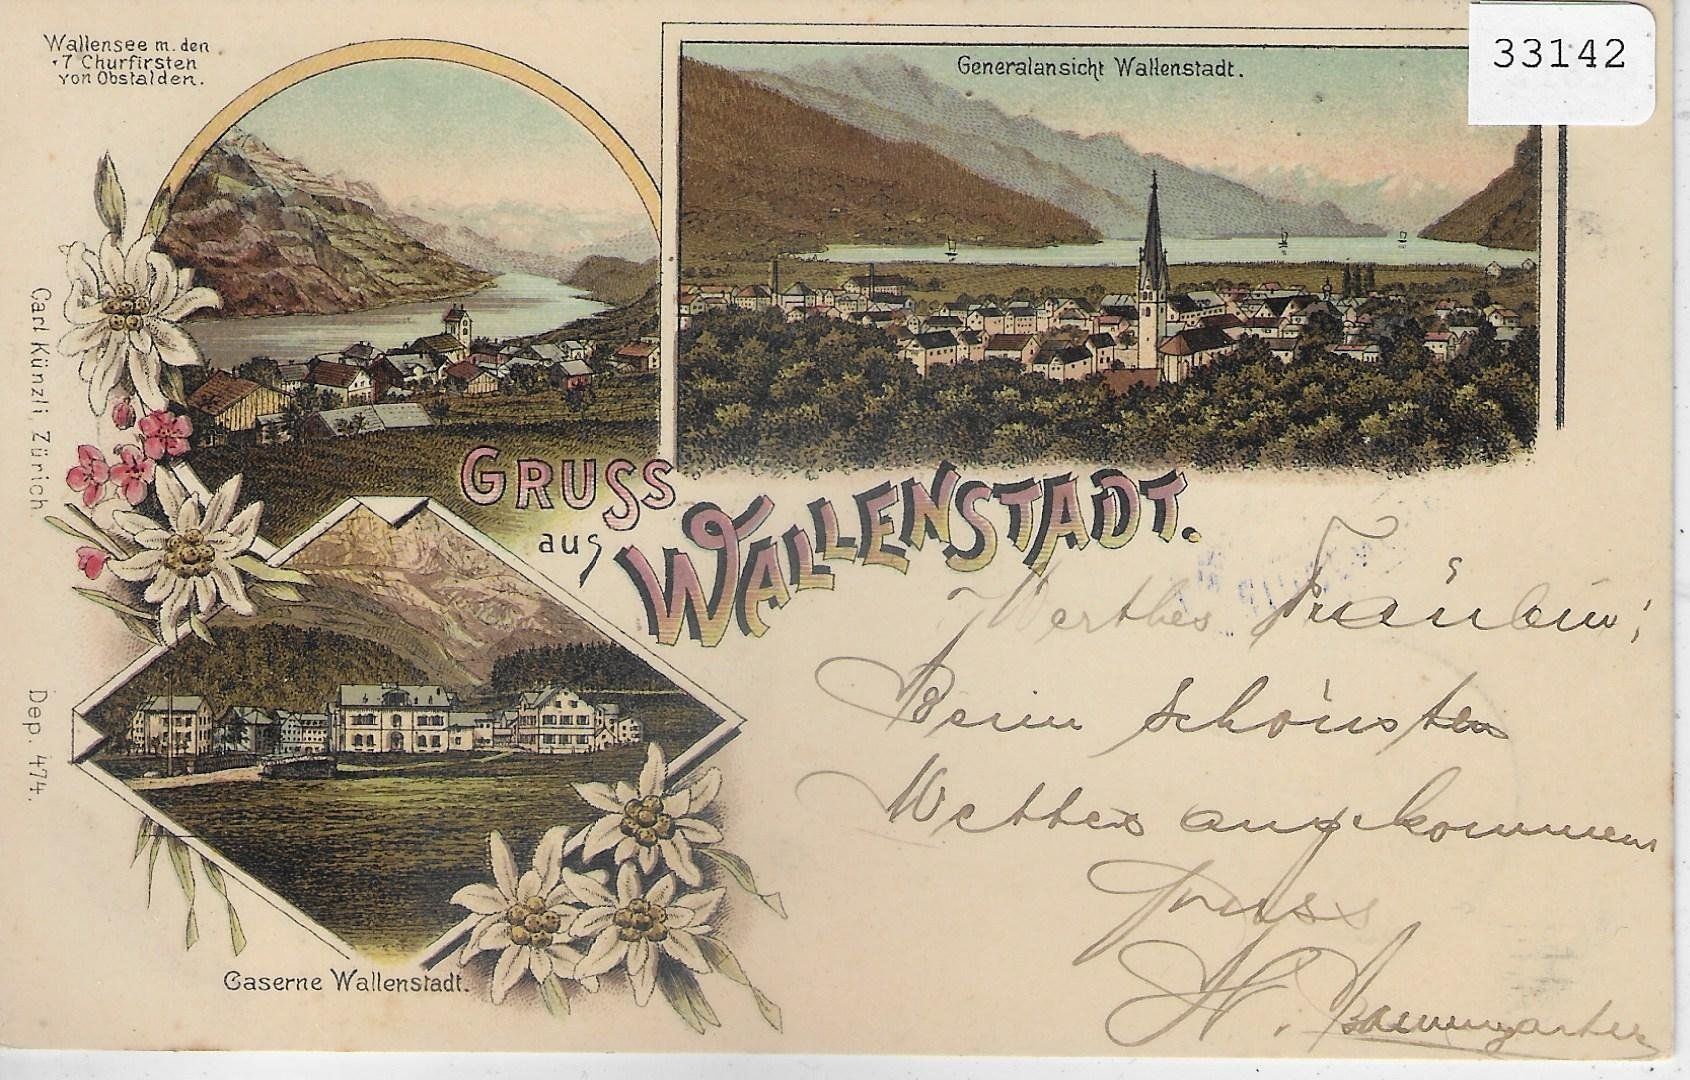 Wallensee m. den
7 Churfirsten
von Obstalden.
33142
Generalansicht Wallenstadt.
Carl Künzli, Zürich
Dep. 474.
GRUSS
aus
WALLENSTADT.
Caserne Wallenstadt.
Werthes Fräulein;
Beim schönsten
Wetter angekommen
Gruss
H. Baumgartner